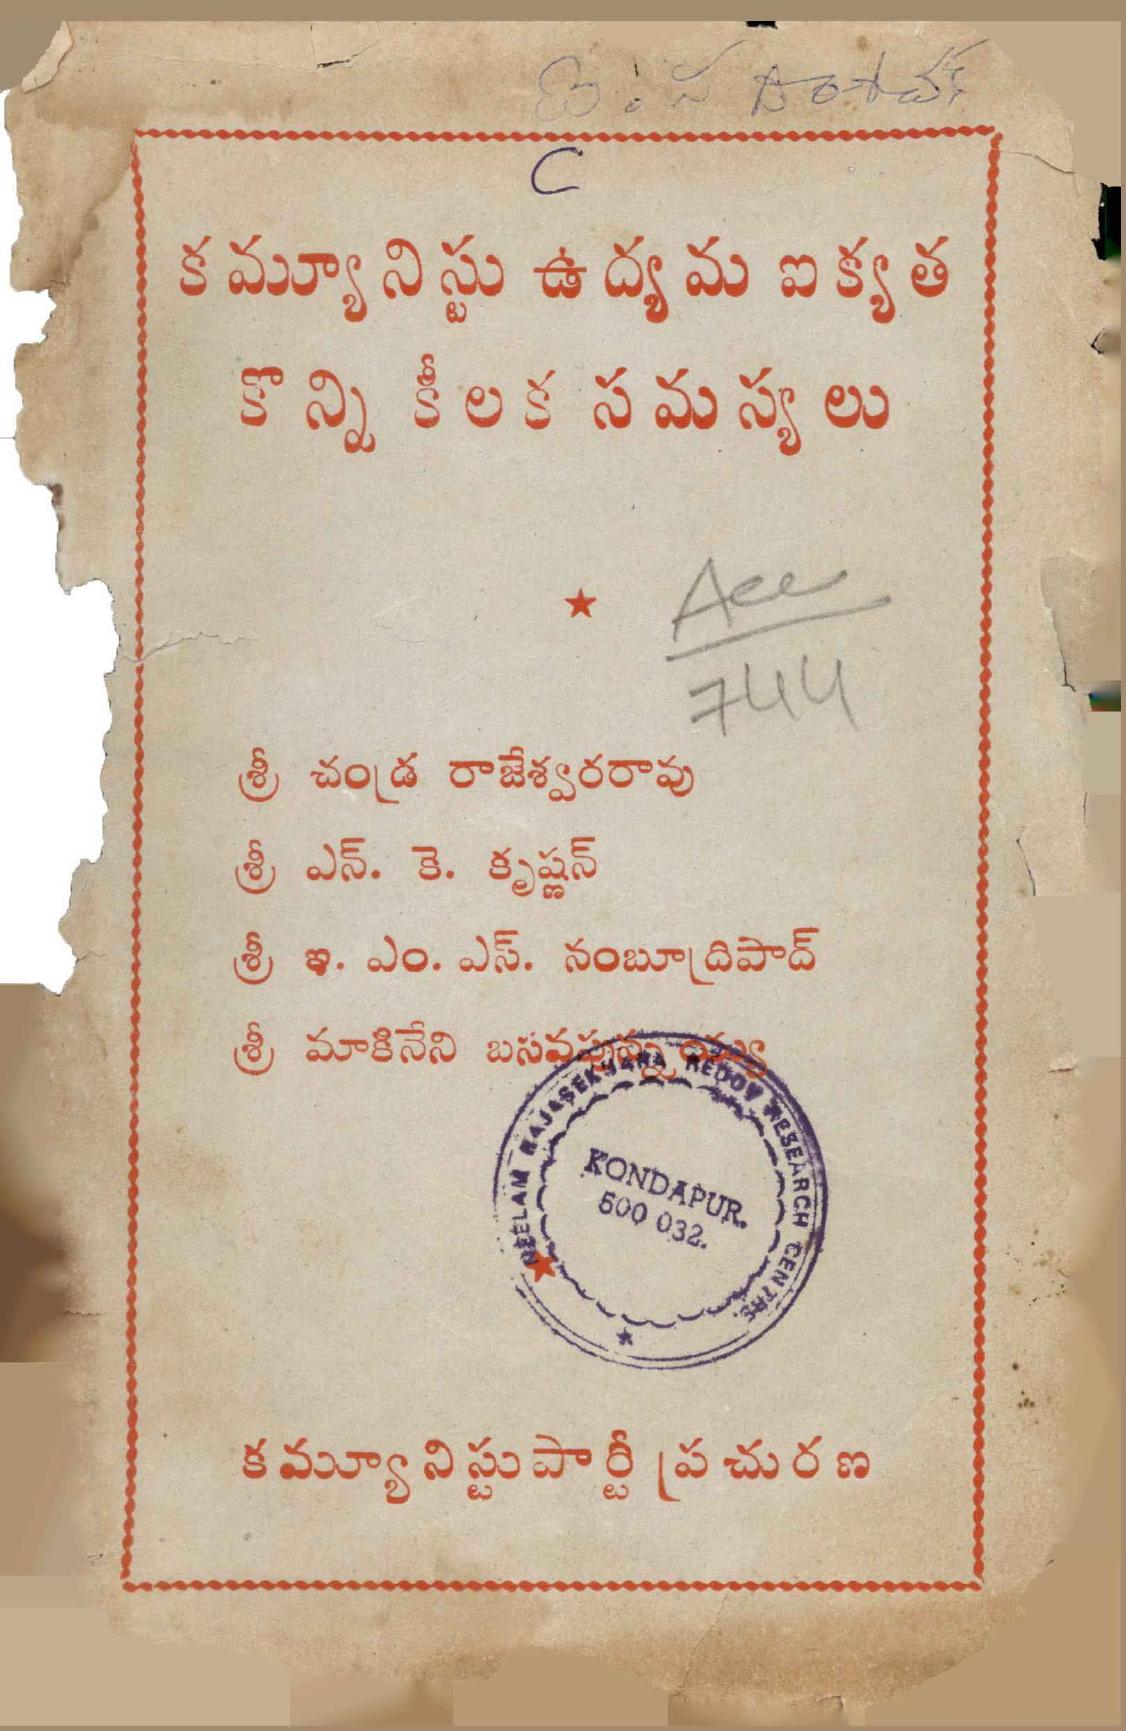 C
కమ్యూనిస్టు ఉద్యమ ఐక్యత
కొన్ని కీలక సమస్యలు
Acc
744
శ్రీ చండ్ర రాజేశ్వరరావు
శ్రీ ఎన్. కె. కృష్ణన్
శ్రీ ఇ. ఎం. ఎస్. నంబూద్రిపాద్
శ్రీ మాకినేని బసవపున్నయ్య
NEELAM RAJASEKHARA REDDY RESEARCH CENTRE.
KONDAPUR.
500 032.
కమ్యూనిస్టుపార్టీ ప్రచురణ